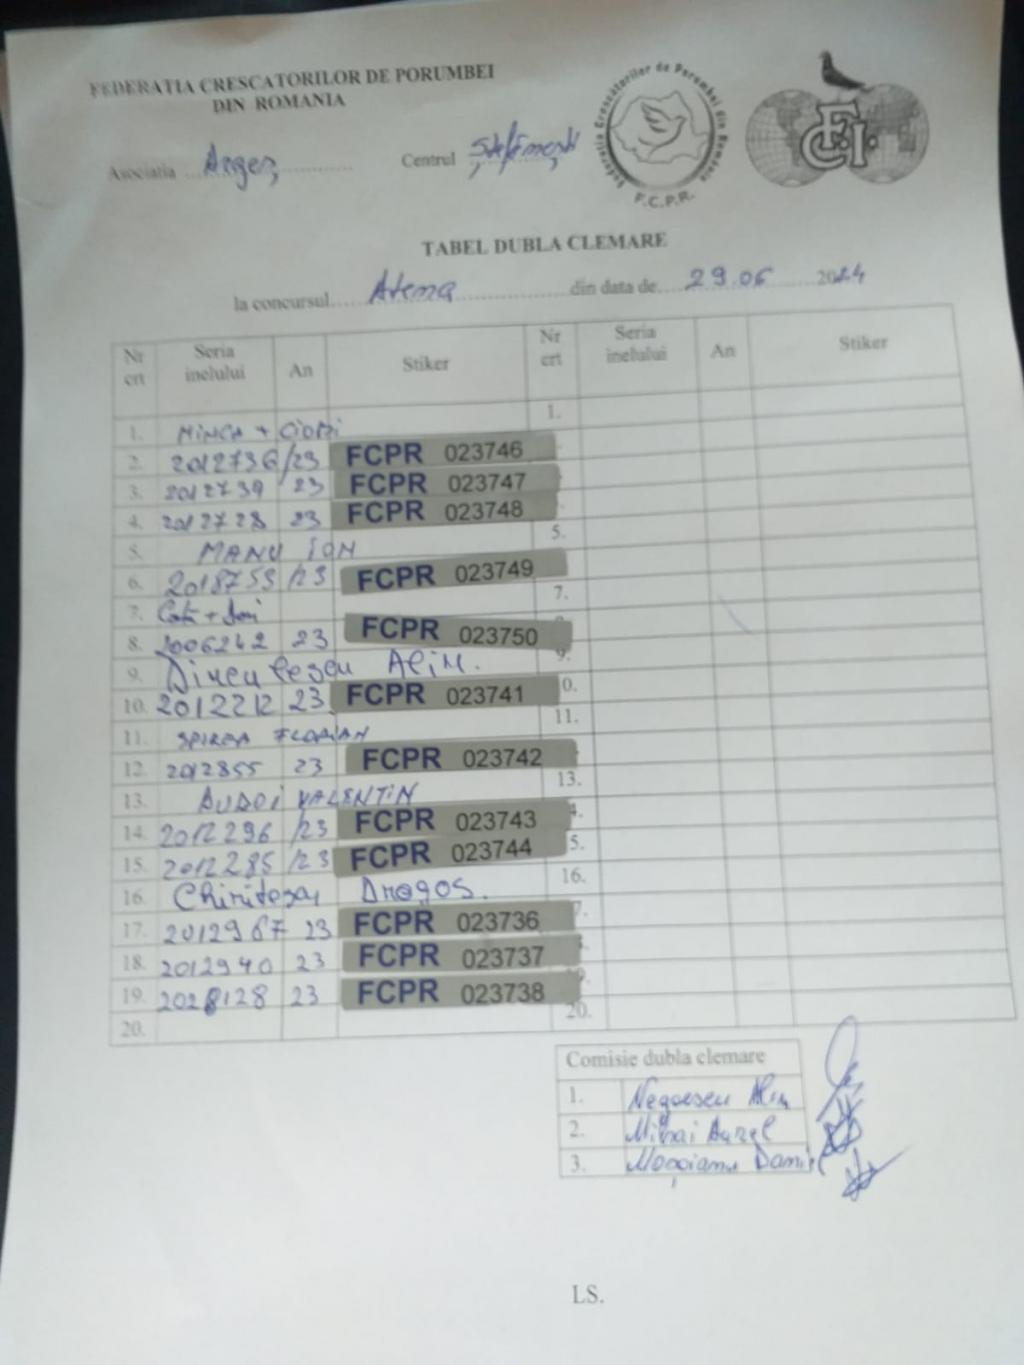 FEDERATIA CRESCATORILOR DE PORUMBEI
DIN ROMANIA
Asociatia Argeș Centrul Ștefănești
Federatia Crescătorilor de Porumbei din Romania
F.C.P.R.
FCI
TABEL DUBLA CLEMARE
la concursul Atena din data de 29.06 2024
Nr crt Seria inelului An Stiker Nr crt Seria inelului An Stiker
1. MINCA + CIOBI 1.
2. 2012736 /23 FCPR 023746
3. 2012739 23 FCPR 023747
4. 2012728 23 FCPR 023748
5. MANU ION 5.
6. 2018753 /23 FCPR 023749
7. 7.
8. 2006242 23 FCPR 023750
9. Dinculescu Alin. 9.
10. 2012212 23 FCPR 023741 0.
11. SPIREA FLORIAN 11.
12. 2012855 23 FCPR 023742
13. VALENTIN 13.
14. 2012296 /23 FCPR 023743 4.
15. 2012285 /23 FCPR 023744 5.
16. Chiritescu Dragos. 16.
17. 2012967 23 FCPR 023736 7.
18. 2012940 23 FCPR 023737
19. 2028128 23 FCPR 023738
20. 20.
Comisie dubla clemare
1. Negoescu Alin
2. Mihai Aurel
3. Daniel
LS.